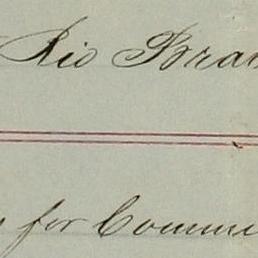 Rio Bran
for Comme